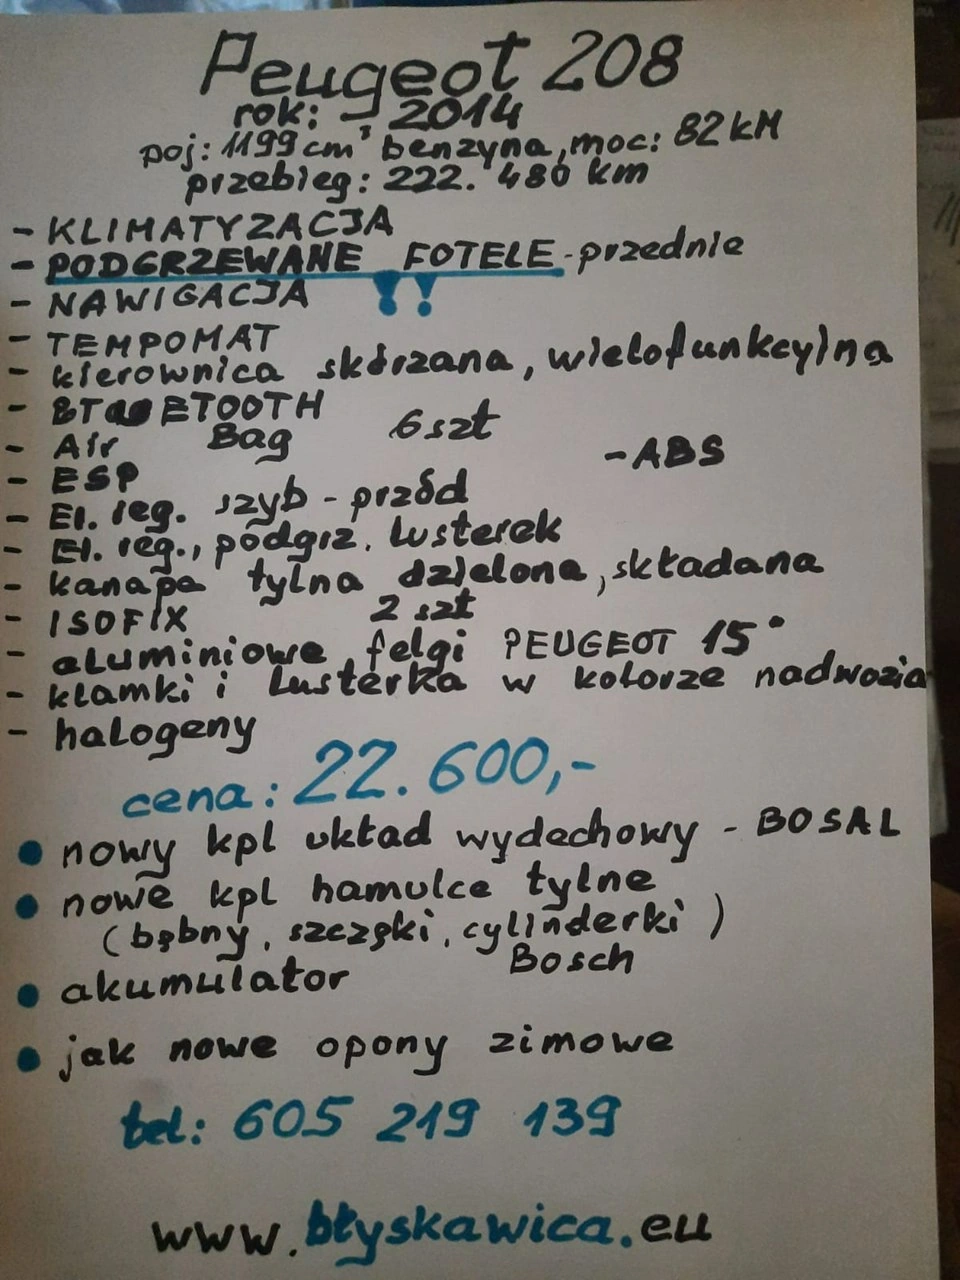 Peugeot 208
rok: 2014
poj: 1199 cm³ benzyna, moc: 82 kM
przebieg: 222. 480 km
- KLIMATYZACJA
- PODGRZEWANE FOTELE - przednie
!!
- NAWIGACJA
- TEMPOMAT
- kierownica skórzana, wielofunkcyjna
- ETOOTH
- Air Bag 6 szt
- ABS
- ESP
- El. reg. szyb - przód
- El. reg., podgrz. lusterek
- kanapa tylna dzielona, składana
- ISOFIX 2 szt
- aluminiowe felgi PEUGEOT 15"
- klamki i lusterka w kolorze nadwozia
- halogeny
cena: 22.600,-
• nowy kpl układ wydechowy - BOSAL
• nowe kpl hamulce tylne
(bębny, szczęki, cylinderki)
• akumulator Bosch
• jak nowe opony zimowe
tel: 605 219 139
www.błyskawica.eu